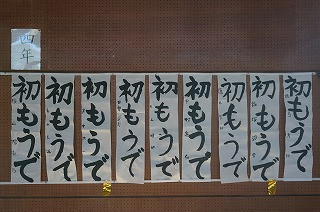 四年
初もうで
初もうで
初もうで
初もうで
初もうで
初もうで
初もうで
初もうで
初もうで